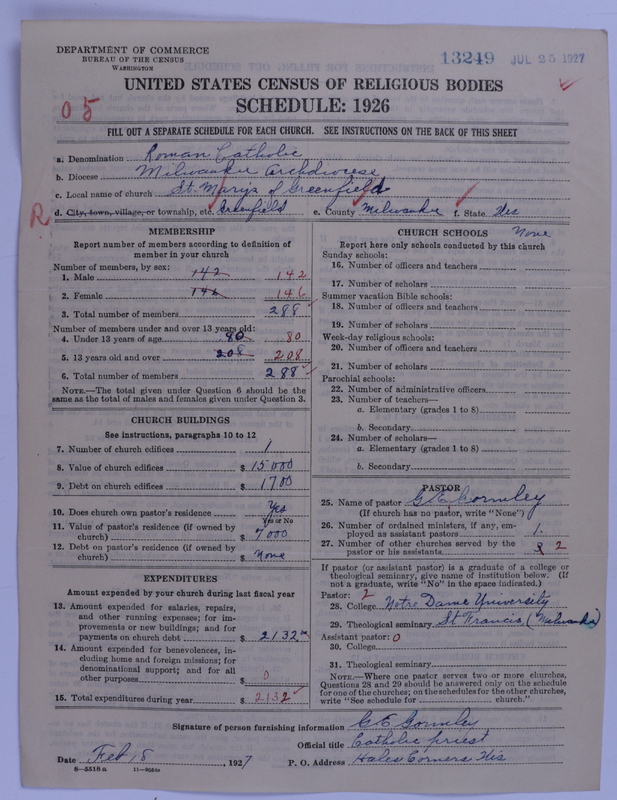 DEPARTMENT OF COMMERCE
BUREAU OF THE CENSUS
WASHINGTON
13249 JUL 25 1927
UNITED STATES CENSUS OF RELIGIOUS BODIES
SCHEDULE: 1926
05
FILL OUT A SEPARATE SCHEDULE FOR EACH CHURCH. SEE INSTRUCTIONS ON THE BACK OF THIS SHEET
a. Denomination Roman Catholic
b. Diocese Milwaukee Archdiocese
c. Local name of church St. Marys of Greenfield
R
d. City, town, village, or township, etc. Greenfield e. County Milwaukee f. State Wis
MEMBERSHIP
Report number of members according to definition of member in your church
Number of members, by sex:
1. Male 142 142
2. Female 146 146
3. Total number of members 288
Number of members under and over 13 years old:
4. Under 13 years of age 80 80
5. 13 years old and over 208 208
6. Total number of members 288
NOTE.—The total given under Question 6 should be the
same as the total of males and females given under Question 3.
CHURCH BUILDINGS
See instructions, paragraphs 10 to 12
7. Number of church edifices 1
8. Value of church edifices $ 15000
9. Debt on church edifices $ 1700
10. Does church own pastor's residence Yes
Yes or No
11. Value of pastor's residence (if owned by
church) $ 7000
12. Debt on pastor's residence (if owned by
church) $ None
EXPENDITURES
Amount expended by your church during last fiscal year
13. Amount expended for salaries, repairs,
and other running expenses; for im-
provements or new buildings; and for
payments on church debt $ 2132
14. Amount expended for benevolences, in-
cluding home and foreign missions; for
denominational support; and for all
other purposes $ 0
15. Total expenditures during year $ 2132
CHURCH SCHOOLS None
Report here only schools conducted by this church
Sunday schools:
16. Number of officers and teachers
17. Number of scholars
Summer vacation Bible schools:
18. Number of officers and teachers
19. Number of scholars
Week-day religious schools:
20. Number of officers and teachers
21. Number of scholars
Parochial schools:
22. Number of administrative officers
23. Number of teachers—
a. Elementary (grades 1 to 8)
b. Secondary
24. Number of scholars—
a. Elementary (grades 1 to 8)
b. Secondary
PASTOR
25. Name of pastor G E Gormley
(If church has no pastor, write "None")
26. Number of ordained ministers, if any, em-
ployed as assistant pastors 1.
27. Number of other churches served by the
pastor or his assistants 3 2
If pastor (or assistant pastor) is a graduate of a college or
theological seminary, give name of institution below. (If
not a graduate, write "No" in the space indicated.)
Pastor: 2
28. College Notre Dame University
29. Theological seminary St Francis (Milwaukee)
Assistant pastor: 0
30. College
31. Theological seminary
NOTE.—Where one pastor serves two or more churches,
Questions 28 and 29 should be answered only on the schedule
for one of the churches; on the schedules for the other churches,
write "See schedule for church."
Signature of person furnishing information G E Gormley
Official title Catholic priest
Date Feb 18, 1927 P. O. Address Hales Corners Wis
8—5518 a